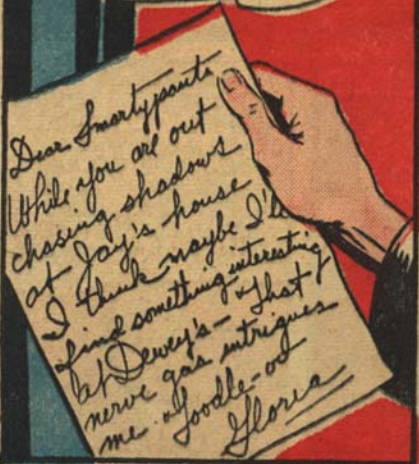 Dear Smartypants
While you are out
chasing shadows
at Jay's house
I think maybe I'll
find something interesting
at Dewey's - that
nerve gas intrigues
me. Toodle-oo
Gloria